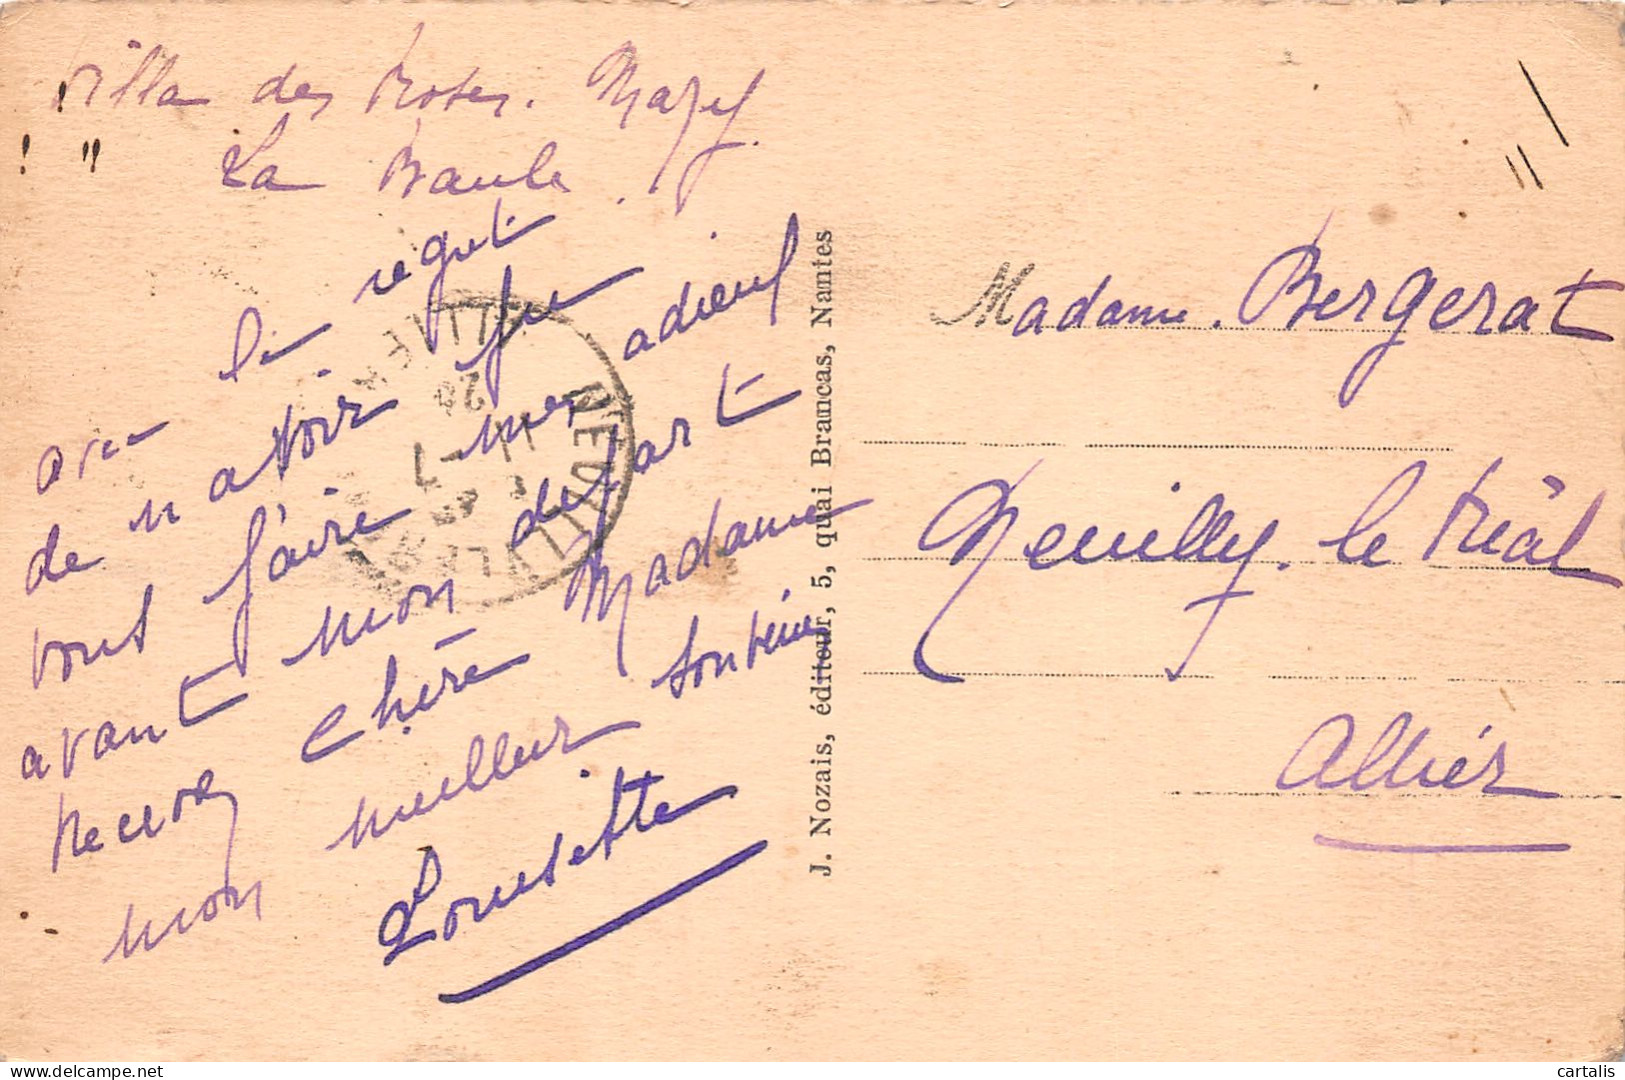 Villa des Roses. Mazy
La Baule.
avec le regret
de n avoir pu
vous faire mes adieux
avant mon départ
Recevez chère Madame
mon meilleur souvenir
Lousette
J. Nozais, éditeur, 5, quai Brancas, Nantes
NEUILLY
11 -7
Madame. Bergerat
Neuilly. le Réal
Allier
delcampe.net
cartalis